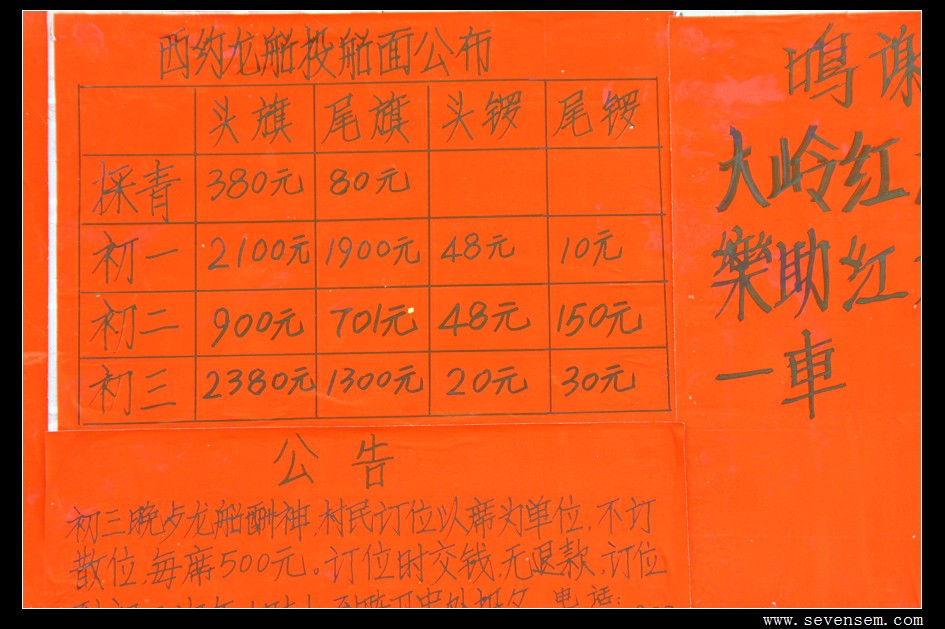 西约龙船投船面公布
头旗 尾旗 头锣 尾锣
採青 380元 80元
初一 2100元 1900元 48元 10元
初二 900元 701元 48元 150元
初三 2380元 1300元 20元 30元
公告
初三晚龙船酬神,村民订位以席为单位,不订
散位,每席500元。订位时交钱,无退款,订位
电话:
鸣谢
大岭红
樂助红
一車
www.sevensem.com